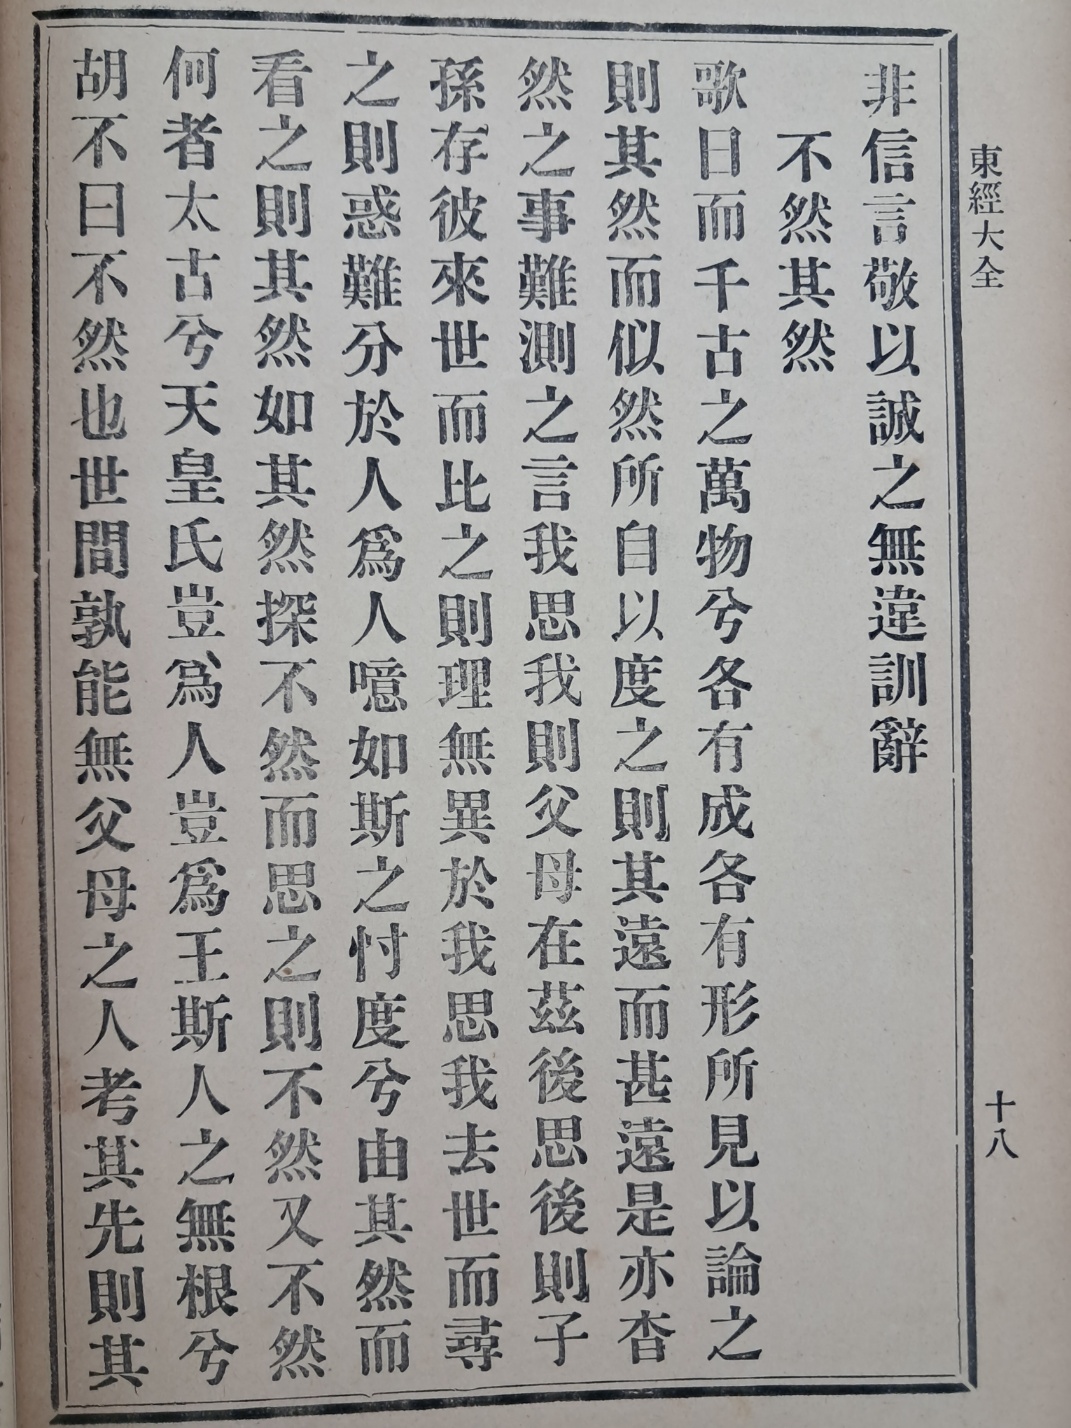 東經大全
十八
非信言敬以誠之無違訓辭
不然其然
歌曰而千古之萬物兮各有成各有形所見以論之
則其然而似然所自以度之則其遠而甚遠是亦杳
然之事難測之言我思我則父母在茲後思後則子
孫存彼來世而比之則理無異於我思我去世而尋
之則惑難分於人爲人噫如斯之忖度兮由其然而
看之則其然如其然探不然而思之則不然又不然
何者太古兮天皇氏豈爲人豈爲王斯人之無根兮
胡不曰不然也世間孰能無父母之人考其先則其